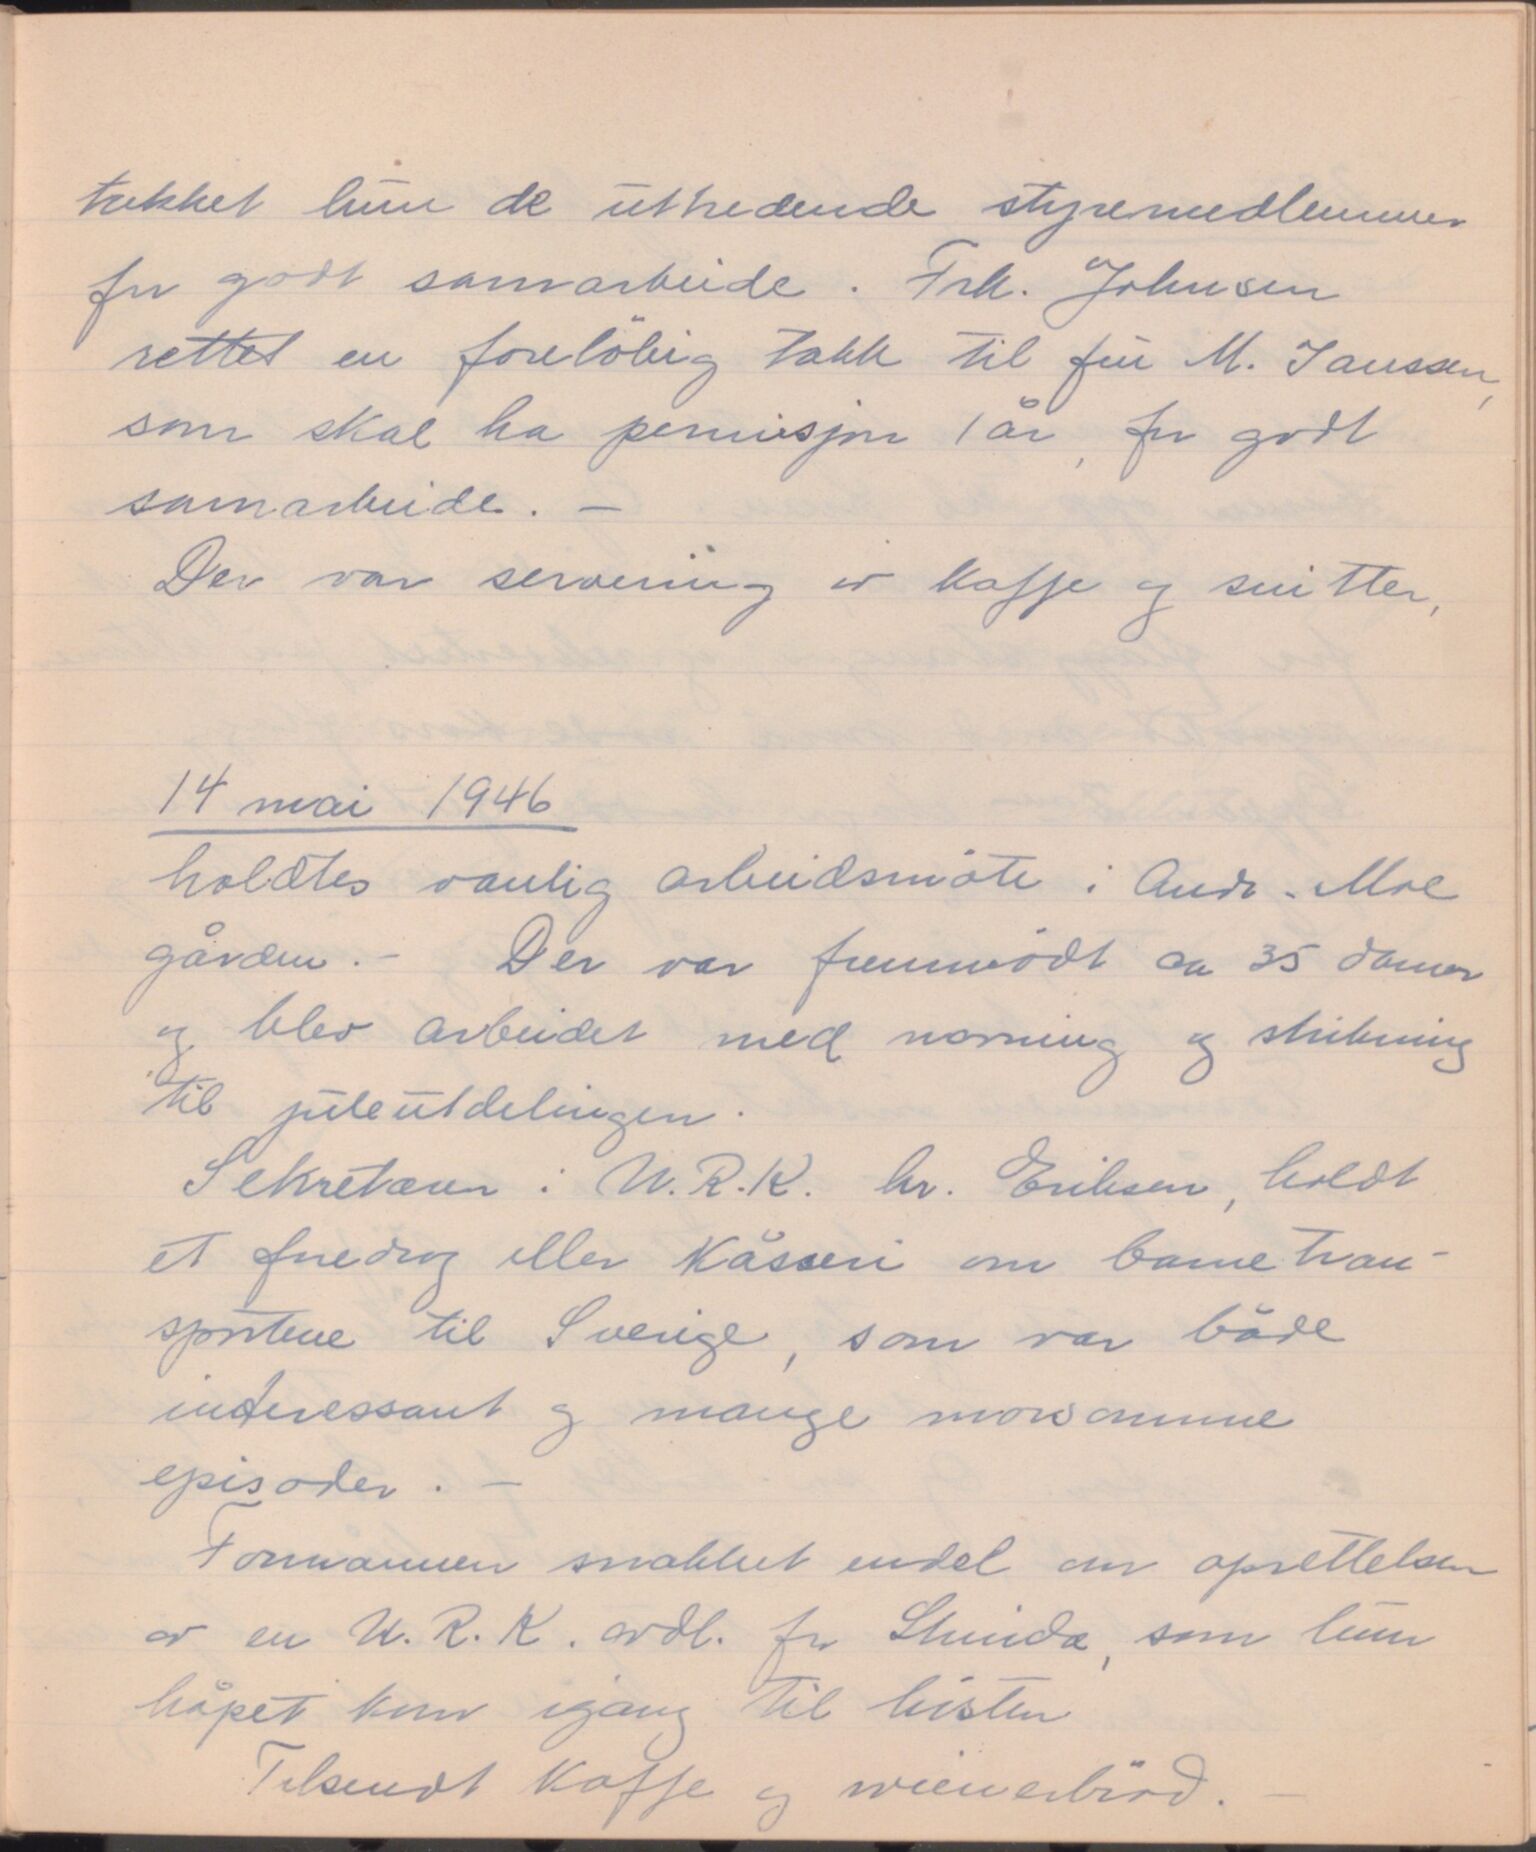 takket hun de uttredende styremedlemmer
for godt samarbeide. Frk. Johnsen
rettet en foreløbig takk til fru M. Janssen,
som skal ha permisjon 1 år, for godt
samarbeide. –
Der var servering av kaffe og snitter.
14 mai 1946
holdtes vanlig arbeidsmöte i Andr. Moe
gården. – Der var fremmödt ca 35 damer
og blev arbeidet med norning og strikning
til juleutdelingen.
Sekretæren i U.R.K. hr. Eriksen, holdt
et foredrag eller kåsseri om barnetran-
sportene til Sverige, som var både
interessant og mange morsomme
episoder. –
Formannen snakket endel om oprettelsen
av en U.R.K. avdl. for Strinda, som hun
håpet kom igang til hösten
Tilsendt kaffe og wienerbröd. –